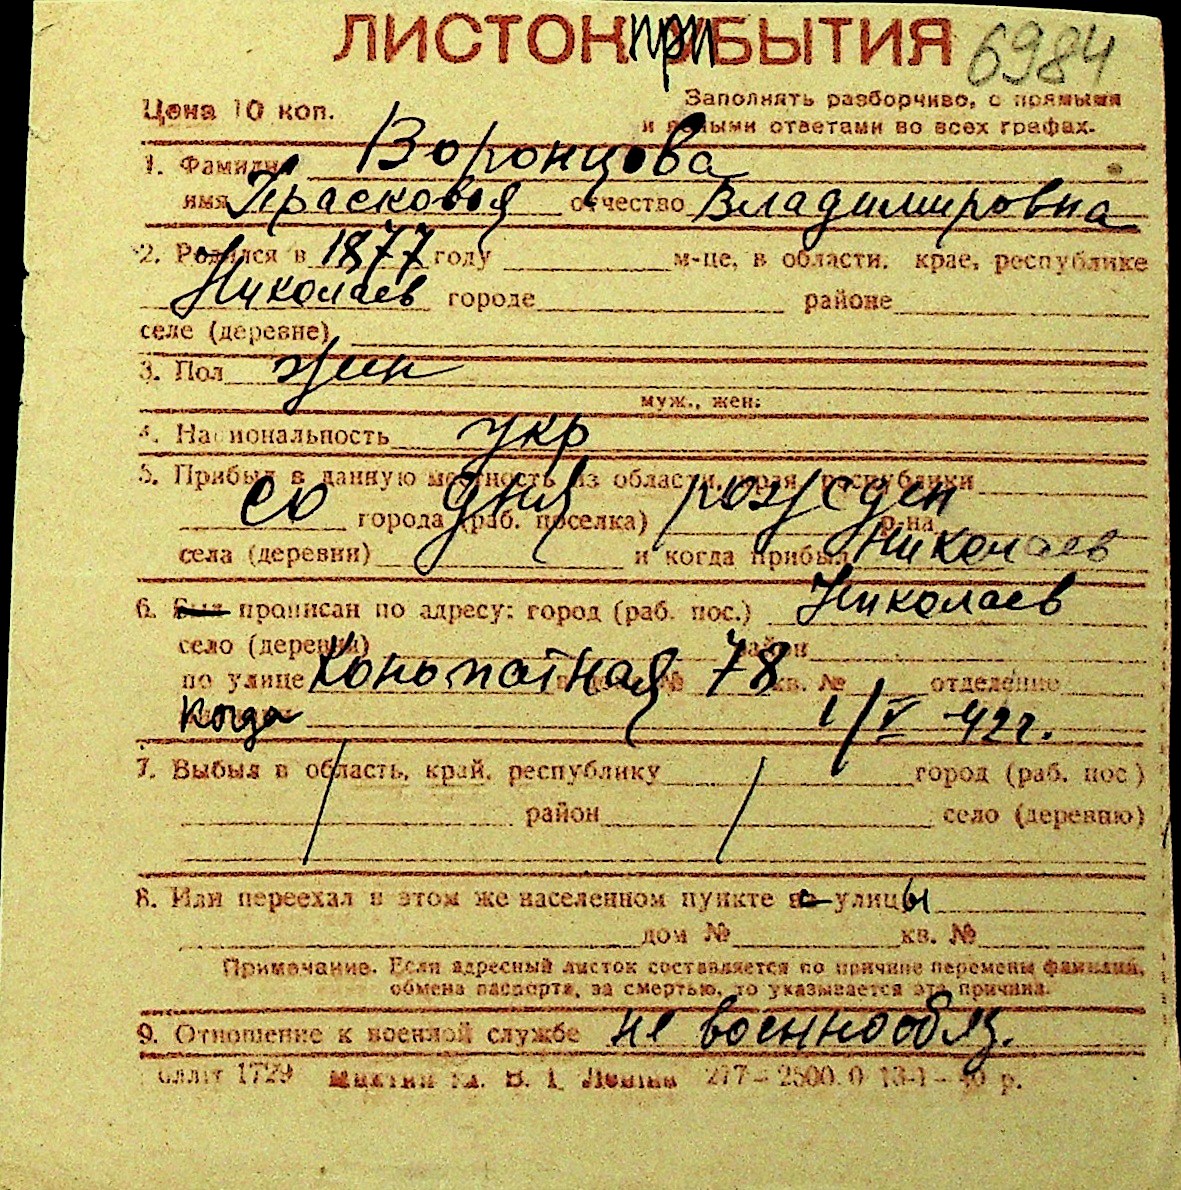 ЛИСТОК прИБЫТИЯ 6984
Цена 10 коп.
Заполнять разборчиво, с прямыми
и ясными ответами во всех графах.
1. Фамилия Воронцова
имя Прасковья отчество Владимировна
2. Родился в 1877 году м-це, в области, крае, республике
Николаев городе районе
селе (деревне)
3. Пол жен
муж., жен.
4. Национальность укр
5. Прибыл в данную местность из области, края, республики
со дня рожден
города (раб. поселка) р-на
села (деревни) и когда прибыл Николаев
6. Был прописан по адресу: город (раб. пос.) Николаев
село (деревня) район
по улице Конопатная № 78 кв. № отделение
когда 1/V 42 г.
7. Выбыл в область, край, республику город (раб. пос.)
район село (деревню)
8. Или переехал в этом же населенном пункте с улицы
дом № кв. №
Примечание. Если адресный листок составляется по причине перемены фамилии,
обмена паспорта, за смертью, то указывается эта причина.
9. Отношение к военной службе не военнообяз.
1729 В. И. Ленина 277–2500.0 13-1–40 р.